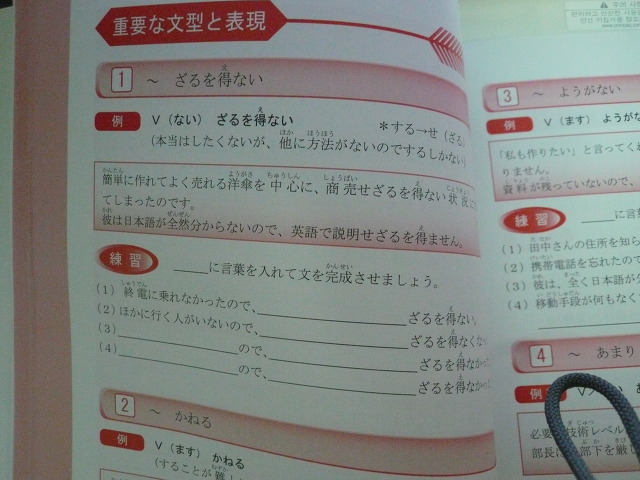 重要な文型と表現
1 ～ ざるを得ない
例 V（ない） ざるを得ない ＊する→せ（ざる）
（本当はしたくないが、他に方法がないのでするしかない）
簡単に作れてよく売れる洋傘を中心に、商売せざるを得ない状況に
てしまったのです。
彼は日本語が全然分からないので、英語で説明せざるを得ません。
練習 ＿＿＿に言葉を入れて文を完成させましょう。
（1）終電に乗れなかったので、＿＿＿＿＿＿＿＿ざるを得ない。
（2）ほかに行く人がいないので、＿＿＿＿＿＿＿＿ざるを得なくな
（3）＿＿＿＿＿＿＿＿ので、＿＿＿＿＿＿＿＿ざるを得なかっ
（4）＿＿＿＿＿＿＿＿ので、＿＿＿＿＿＿＿＿ざるを得なかっ
2 ～ かねる
例 V（ます） かねる
（することが
3 ～ ようがない
例 V（ます） ようがな
「私も作りたい」と言ってく
りません。
資料が残っていないので、
練習 ＿＿＿に言葉
（1）田中さんの住所を知ら
（2）携帯電話を忘れたので
（3）彼は、全く日本語が
（4）移動手段が何もなく
4 ～ あまり
例
必要 技術レベル
部長は 部下を厳し